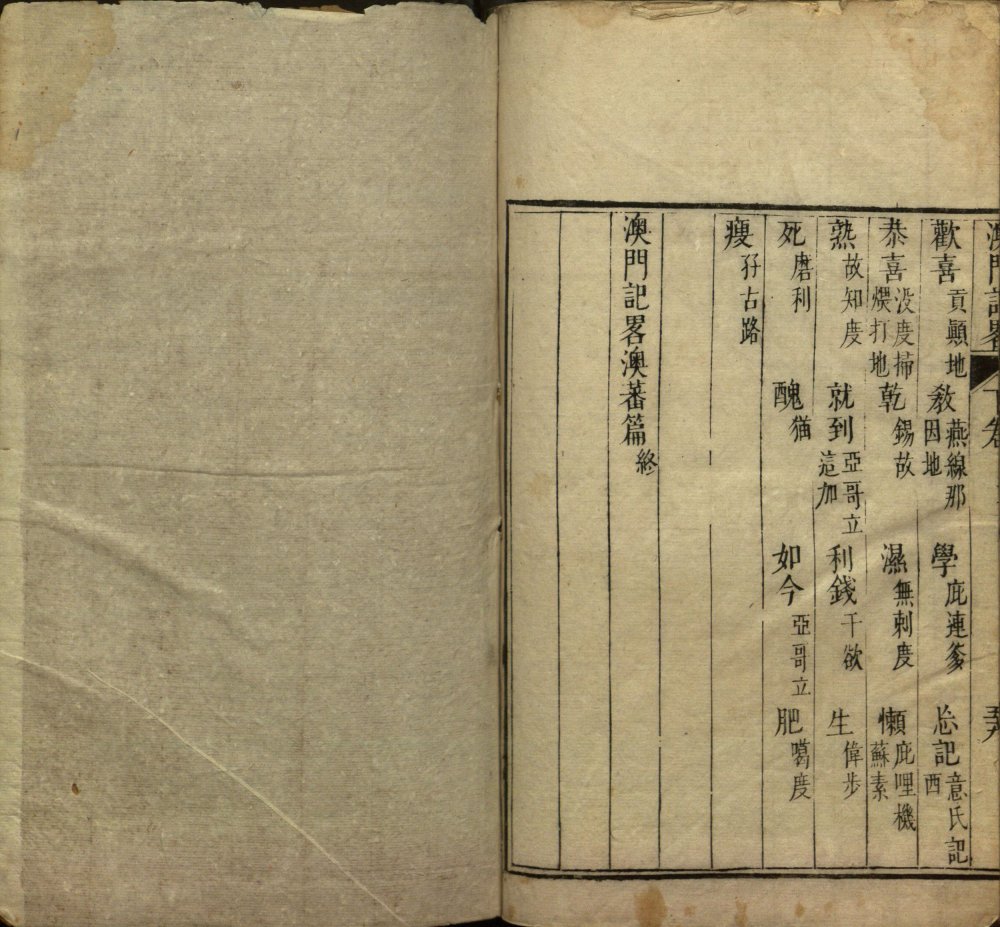 澳門記畧 下卷
歡喜 貢顛地 敎 燕線那因地 學 庇連爹 忘記 意氏記西
恭喜 没度掃煨打地 乾 錫故 濕 無刺度 懶 庇哩機蘇素
熟 故知度 就到 亞哥立這加 利錢 干欲 生 偉步
死 磨利 醜 猫 如今 亞哥立 肥 噶度
瘦 孖古路
澳門記畧澳蕃篇 終